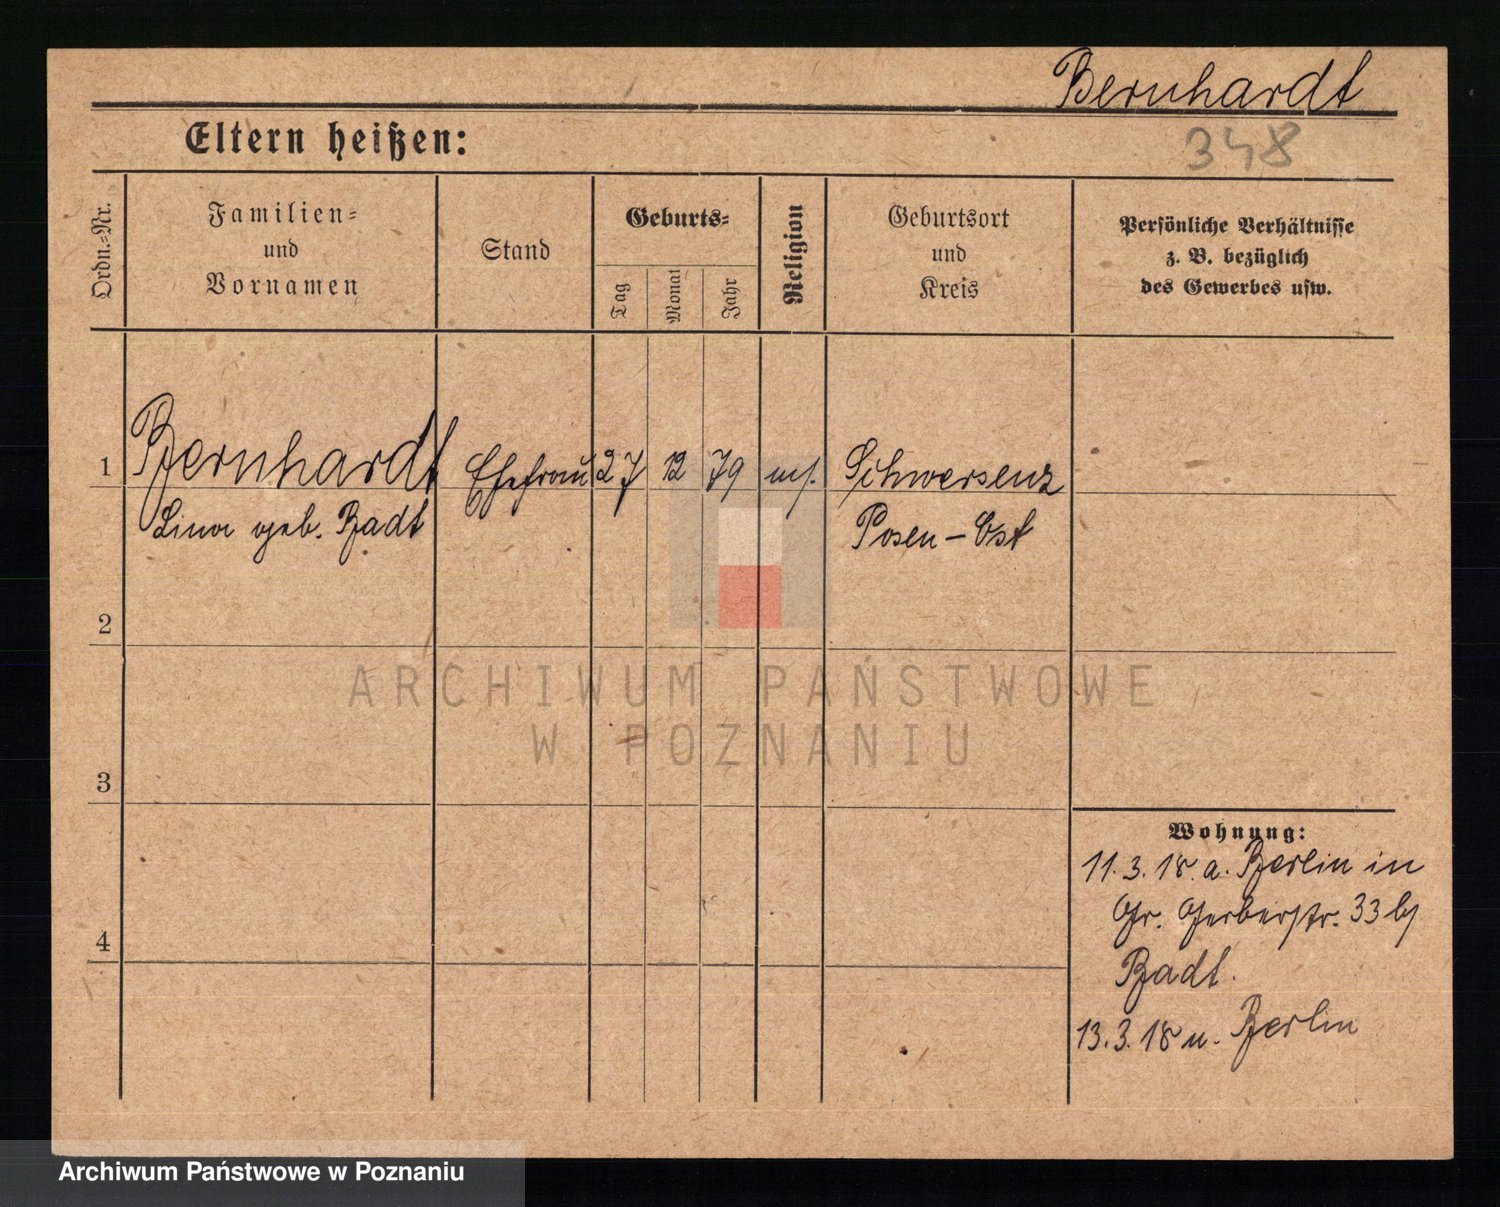 Bernhardt
348
Eltern heißen:
Ordn.-Nr.
Familien-
und
Vornamen
Stand
Geburts-
Tag
Monat
Jahr
Religion
Geburtsort
und
Kreis
Persönliche Verhältnisse
z. B. bezüglich
des Gewerbes usw.
1
Bernhardt Ehefrau 27 12 79 mos. Schwersenz
Lina geb. Badt Posen-Ost
2
3
4
Wohnung:
11.3.18. a. Berlin in
Gr. Gerberstr. 33 b/
Badt.
13.3.18 n. Berlin
ARCHIWUM PAŃSTWOWE
W POZNANIU
Archiwum Państwowe w Poznaniu